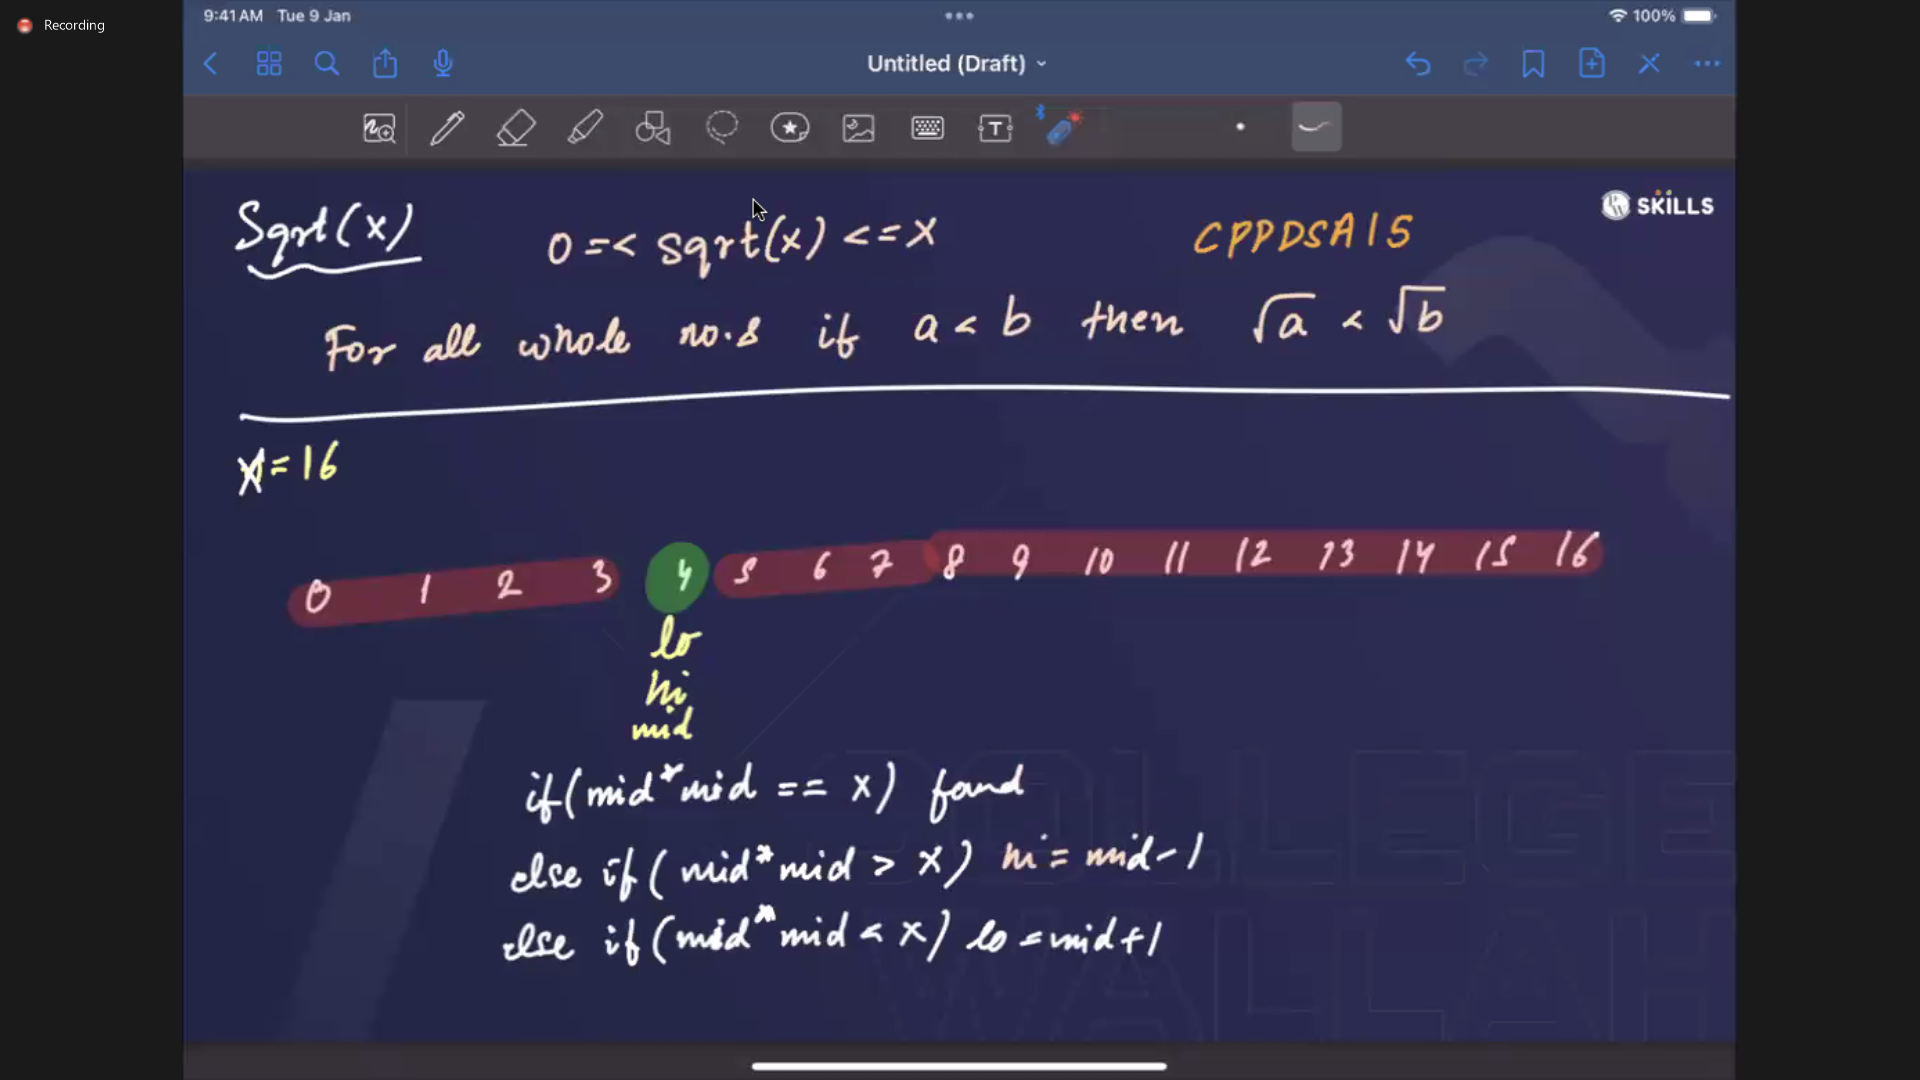 Recording
9:41 AM Tue 9 Jan
100%
Untitled (Draft)
T
SKILLS
Sqrt(x) 0 =< sqrt(x) <= x CPPDSA15
For all whole no.s if a < b then √a < √b
x = 16
0 1 2 3 4 5 6 7 8 9 10 11 12 13 14 15 16
lo
hi
mid
if(mid*mid == x) found
else if(mid*mid > x) hi = mid-1
else if(mid*mid < x) lo = mid+1
COLLEGE
WALLAH